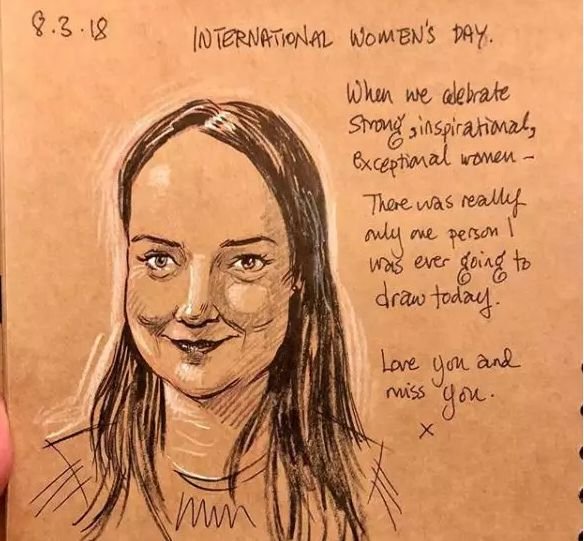 8.3.18
INTERNATIONAL WOMEN'S DAY.
When we celebrate
strong, inspirational,
exceptional women –
There was really
only one person I
was ever going to
draw today.
Love you and
miss you.
x